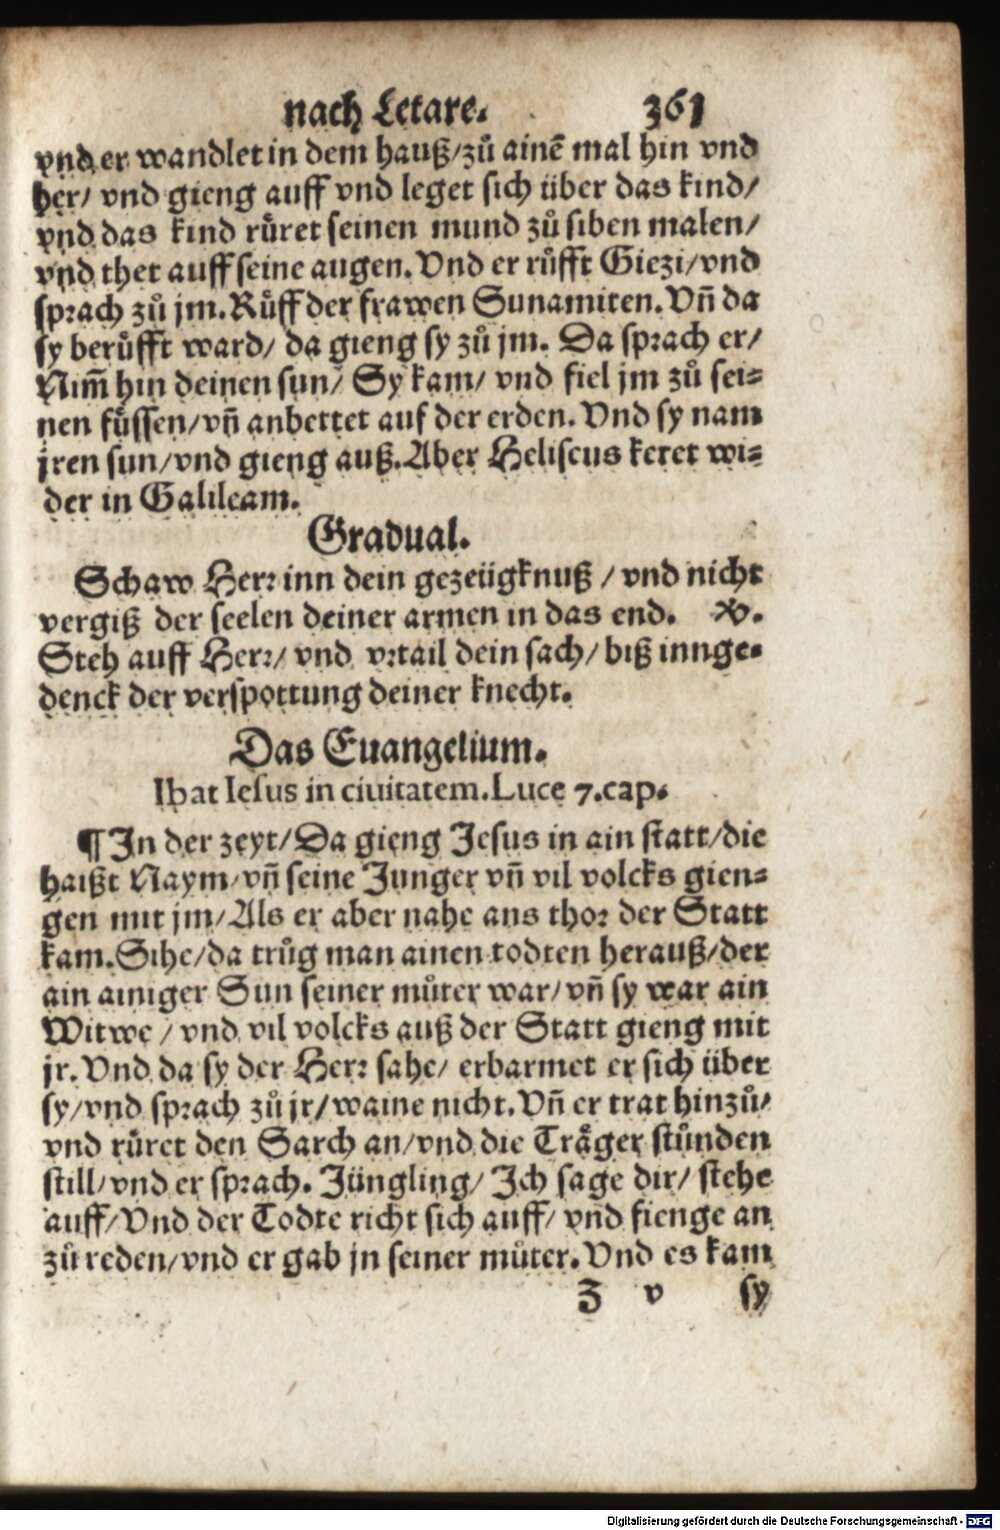 nach Letare. 361
vnd er wandlet in dem hauß/zů ainē mal hin vnd
her/ vnd gieng auff vnd leget sich über das kind/
vnd das kind růret seinen mund zů siben malen/
vnd thet auff seine augen. Vnd er růfft Giezi/vnd
sprach zů jm. Růff der frawen Sunamiten. Vñ da
sy berůfft ward/ da gieng sy zů jm. Da sprach er/
Nim̃ hin deinen sun/ Sy kam/ vnd fiel jm zů sei=
nen fůssen/vñ anbettet auf der erden. Vnd sy nam
jren sun/vnd gieng auß. Aber Heliseus keret wi=
der in Galileam.
Gradual.
Schaw Herr inn dein gezeügknuß / vnd nicht
vergiß der seelen deiner armen in das end. ℣.
Steh auff Herr/ vnd vrtail dein sach/ biß innge=
denck der verspottung deiner knecht.
Das Euangelium.
Ibat Iesus in ciuitatem. Luce 7. cap.
¶ In der zeyt/ Da gieng Jesus in ain statt/die
haißt Naym/vñ seine Junger vñ vil volcks gien=
gen mit jm/ Als er aber nahe ans thor der Statt
kam. Sihe/da trůg man ainen todten herauß/der
ain ainiger Sun seiner můter war/ vñ sy war ain
Witwe / vnd vil volcks auß der Statt gieng mit
jr. Vnd da sy der Herr sahe/ erbarmet er sich über
sy/vnd sprach zů jr/waine nicht. Vñ er trat hinzů/
vnd růret den Sarch an/vnd die Träger stůnden
still/vnd er sprach. Jüngling/ Ich sage dir/ stehe
auff/ Vnd der Todte richt sich auff/ vnd fienge an
zů reden/vnd er gab jn seiner můter. Vnd es kam
Z v sy
Digitalisierung gefördert durch die Deutsche Forschungsgemeinschaft - DFG